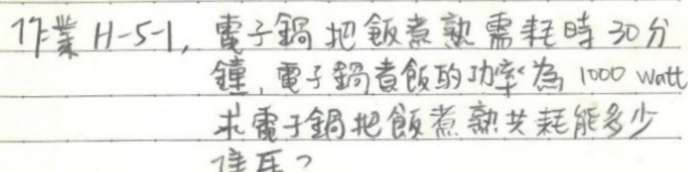 作業 H-5-1, 電子鍋把飯煮熟需耗時30分
鐘, 電子鍋煮飯的功率為 1000 watt
求電子鍋把飯煮熟共耗能多少
焦耳?